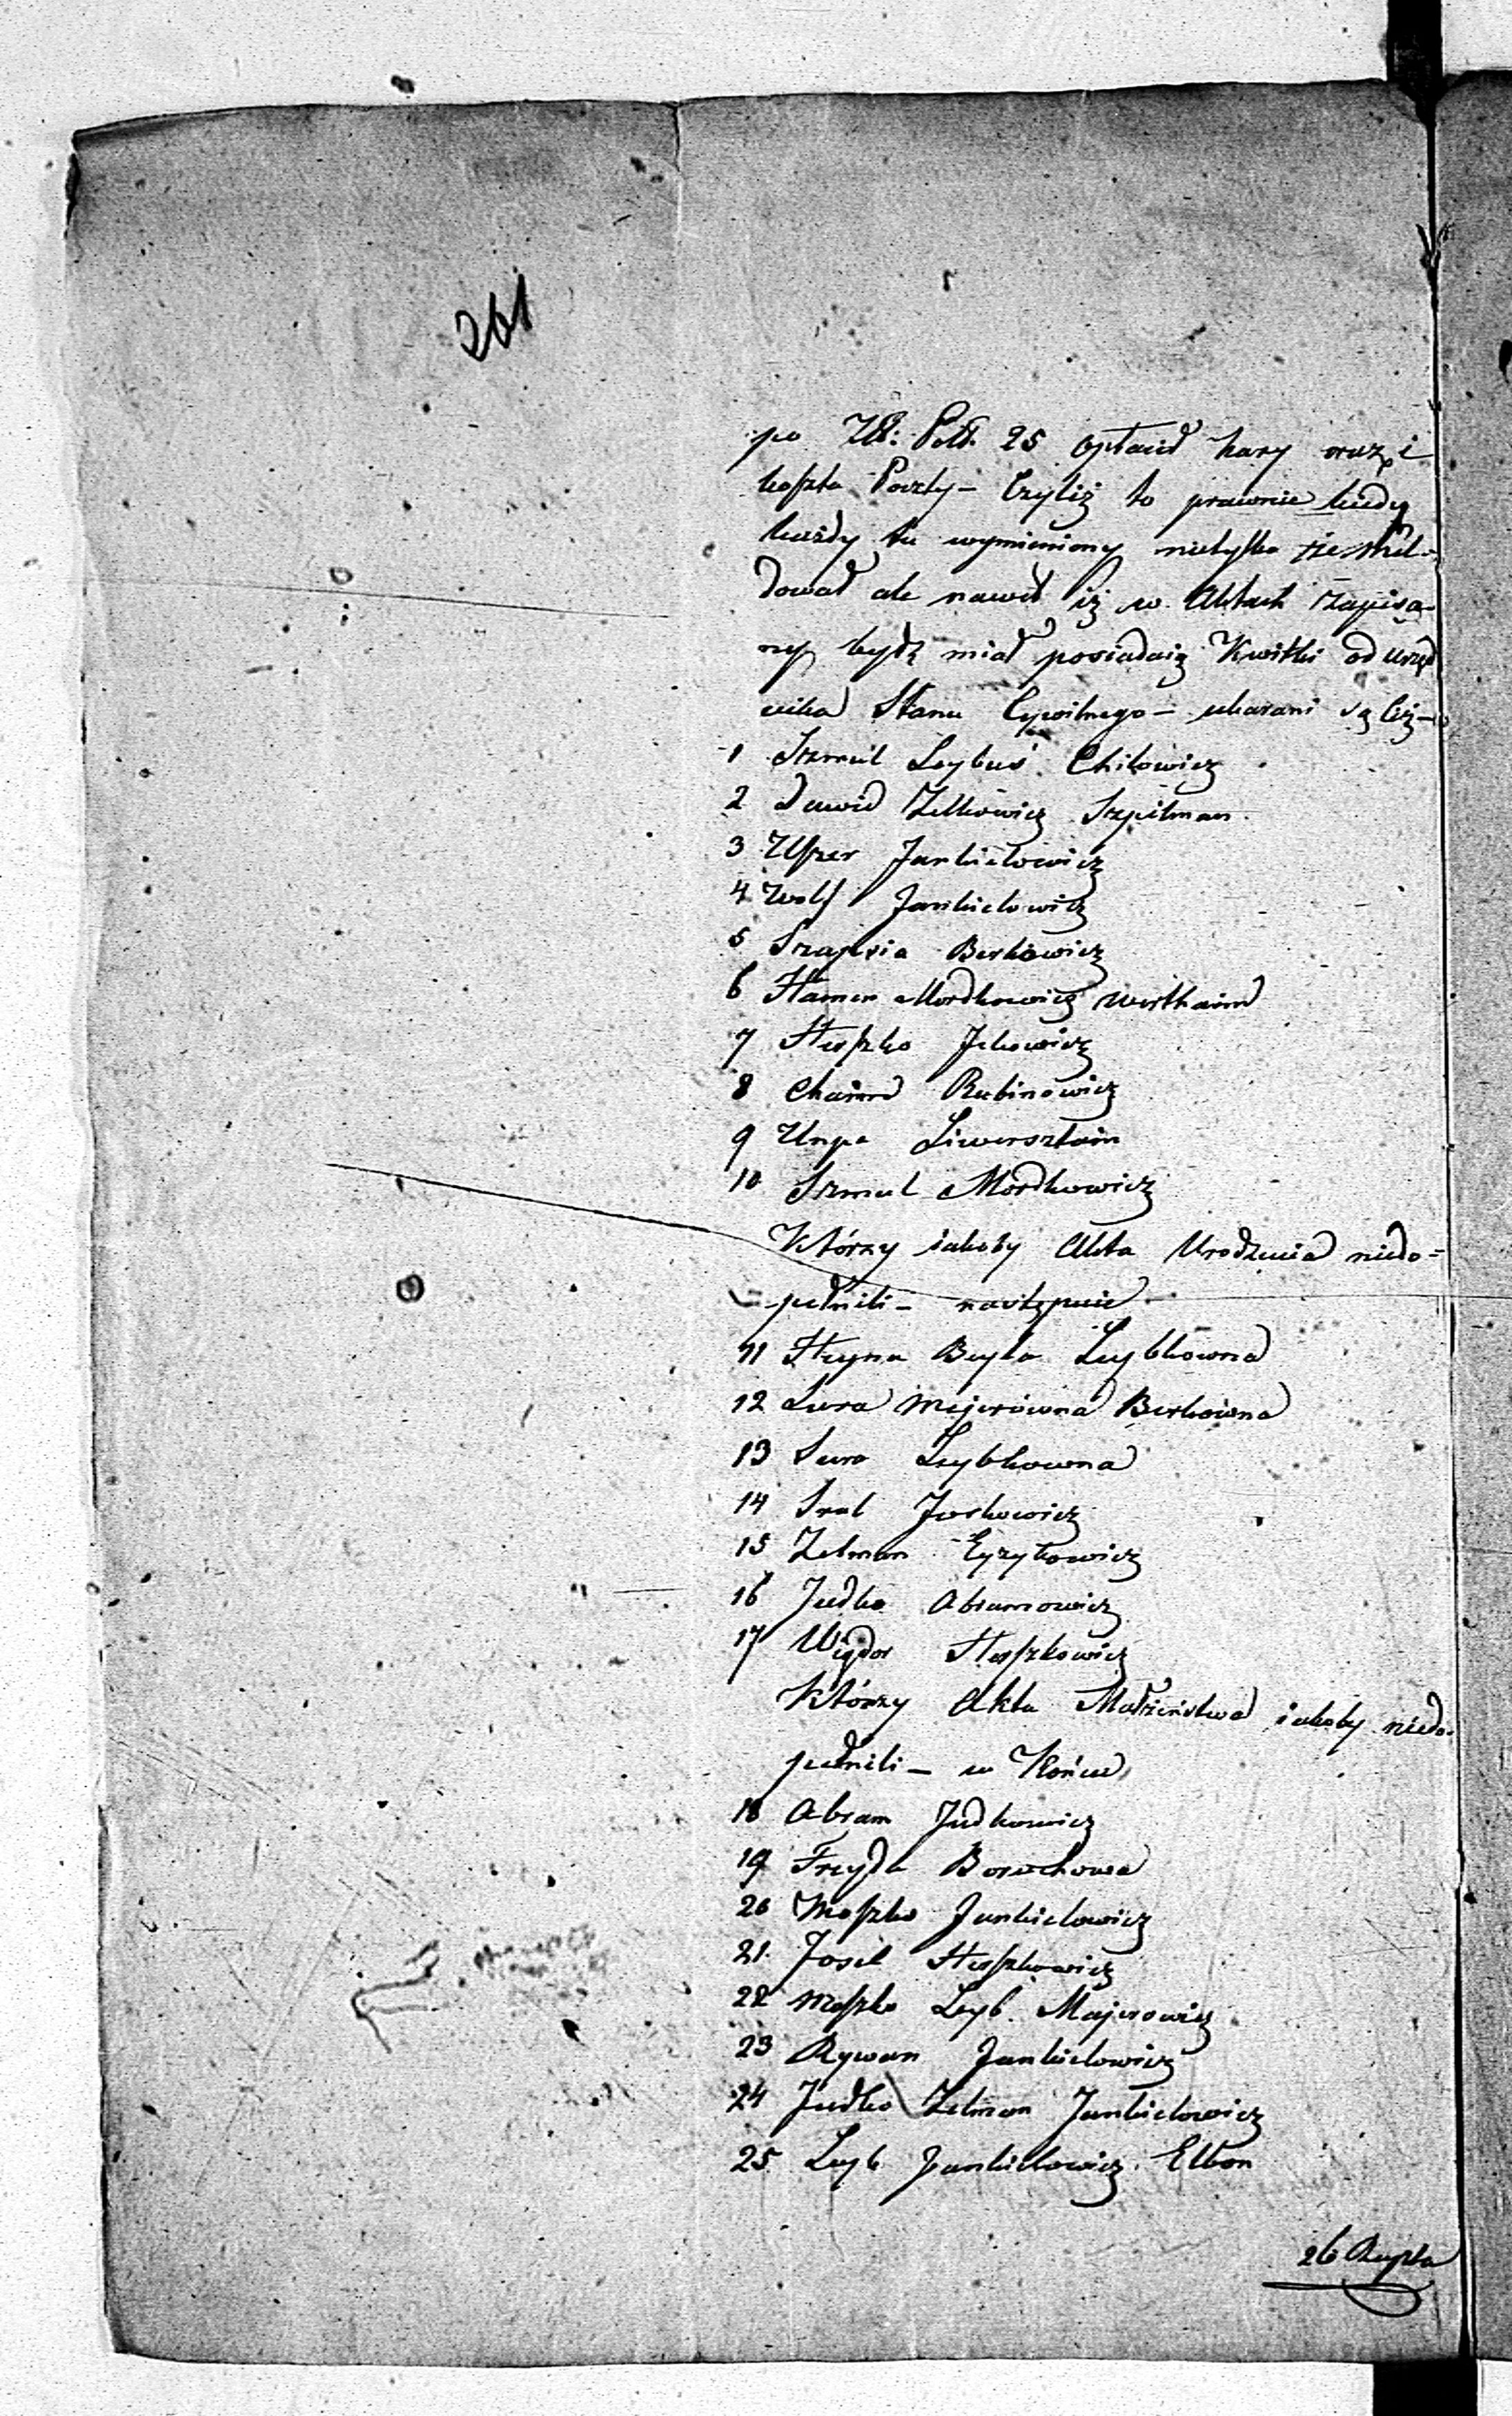 261
po Zł: Pol. 25 opłacił kary oraz i
koszta Poczty – Czyliż to prawnie kiedy
każdy tu wymieniony nietylko że Mel-
dował ale nawet iż w Aktach zapisa-
ny bydź miał posiadaią Kwitki od Urzęd
nika Stanu Cywilnego – ukarani są Ciż –
1 Szmul Leybuś Chilowicz
2 Dawid Zelkowicz Szpilman
3 Uszer Jankielowicz
4 Wolf Jankielowicz
5 Berkowicz
6 Mordkowicz Werthaim
7 Herszko Jckowicz
8 Chaim Rubinowicz
9 Unger Liwersztain
10 Szmul Mordkowicz
Którzy iakoby Akta Urodzenia niedo=
pełnili – następnie
11 Hayna Bayla Leybkowna
12 Sura Mejerówna Berkówna
13 Sura Leybkowna
14 Srul Joskowicz
15 Zelman Eyzykowicz
16 Judka Abramowicz
17 Wigdor Herszkowicz
Którzy Akta Małżeństwa iakoby niedo-
pełnili – w Końcu
18 Abram Judkowicz
19 Frayda Borochowa
20 Moszko Jankielowicz
21 Josek Herszkowicz
22 Moszko Leyb Majerowicz
23 Rywan Jankielowicz
24 Judka Zelman Jankielowicz
25 Leyb Jankielowicz Elbon
26 Ruchla